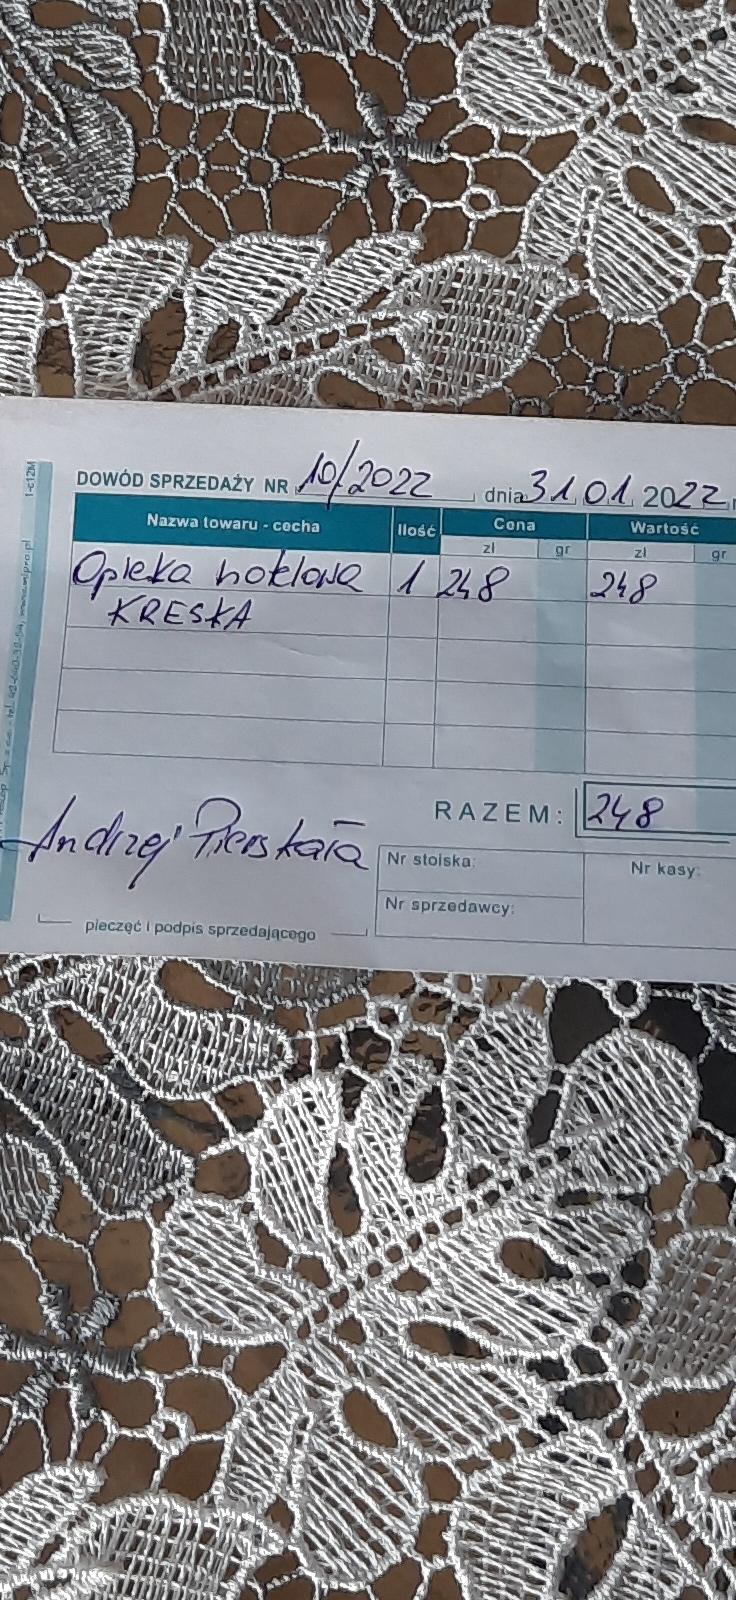 DOWÓD SPRZEDAŻY NR 10/2022 dnia 31.01.2022 r
Nazwa towaru - cecha Ilość Cena Wartość
zł gr zł gr
Opieka hotelowa 1 248 248
KRESKA
RAZEM: 248
Andrzej
Nr stoiska: Nr kasy:
Nr sprzedawcy:
pieczęć i podpis sprzedającego
1-e12M